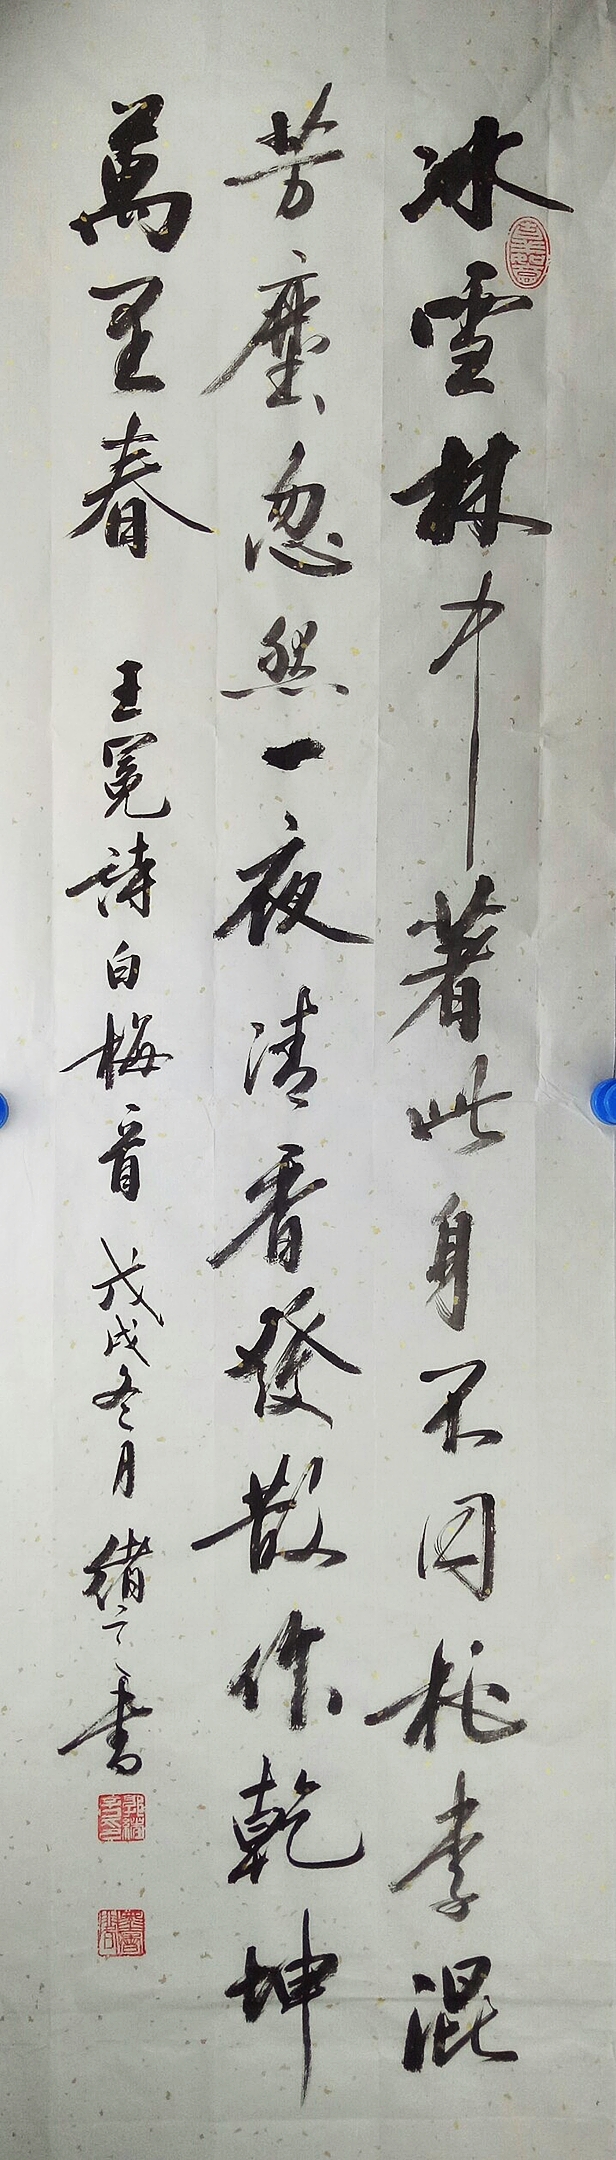 冰雪林中著此身不同桃李混
芳塵忽然一夜清香發散作乾坤
萬里春 王冕詩白梅一首 戊戌冬月 緒之書